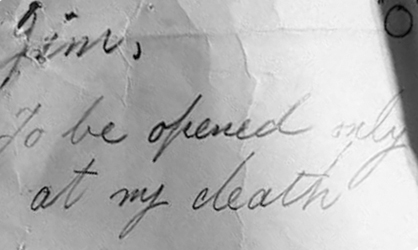 Jim,
To be opened only
at my death